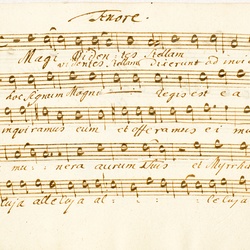 Tenore.
Magi Videntes stellam
videntes stellam dixerunt ad invi
hoc signum Magni Regis est e a
inquiramus eum et offeramus e i mu
mu nera aurum thus et Myrrha
luja alleluja al leluja